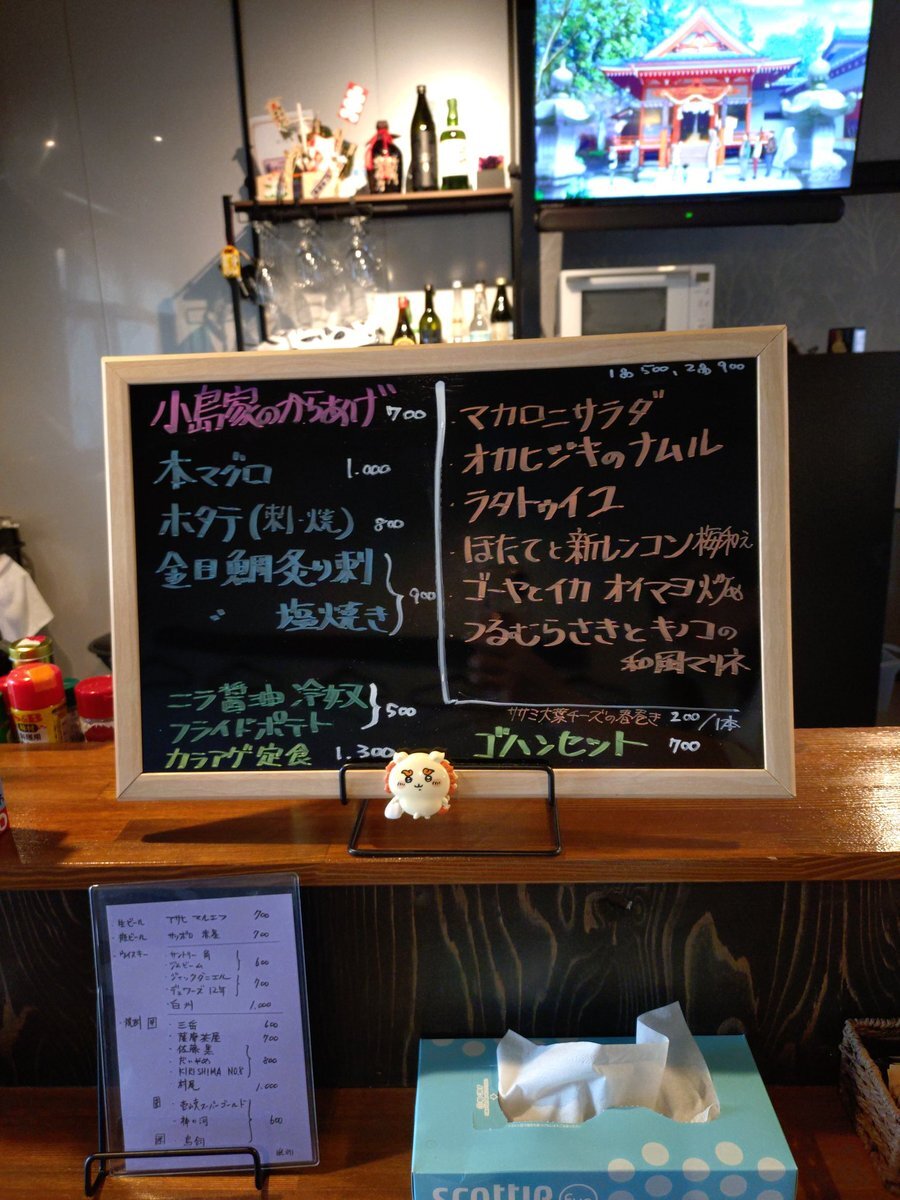 小島家のからあげ 700
本マグロ 1.000
ホタテ(刺・焼) 800
金目鯛炙り刺
〃 塩焼き 900
ニラ醤油 冷奴
フライドポテト 500
カラアゲ定食 1.300
1品500、2品900
マカロニサラダ
・オカヒジキのナムル
・ラタトゥイユ
・ほたてと新レンコン梅和え
・ゴーヤとイカ オイマヨ炒め
・つるむらさきとキノコの
和風マリネ
ササミ大葉チーズの春巻き 200/1本
ゴハンセット 700
・生ビール アサヒ マルエフ 700
・瓶ビール サッポロ 赤星 700
・ウイスキー ・サントリー 角
・ジムビーム 600
・ジャックダニエル
・デュワーズ 12年 700
・白州 1.000
・焼酎 芋 ・三岳 600
・薩摩茶屋 700
・佐藤 黒
・だいやめ 800
・KIRISHIMA NO.8
・村尾 1.000
麦 ・壱岐スーパーゴールド
・神の河 600
鳥飼
scottie